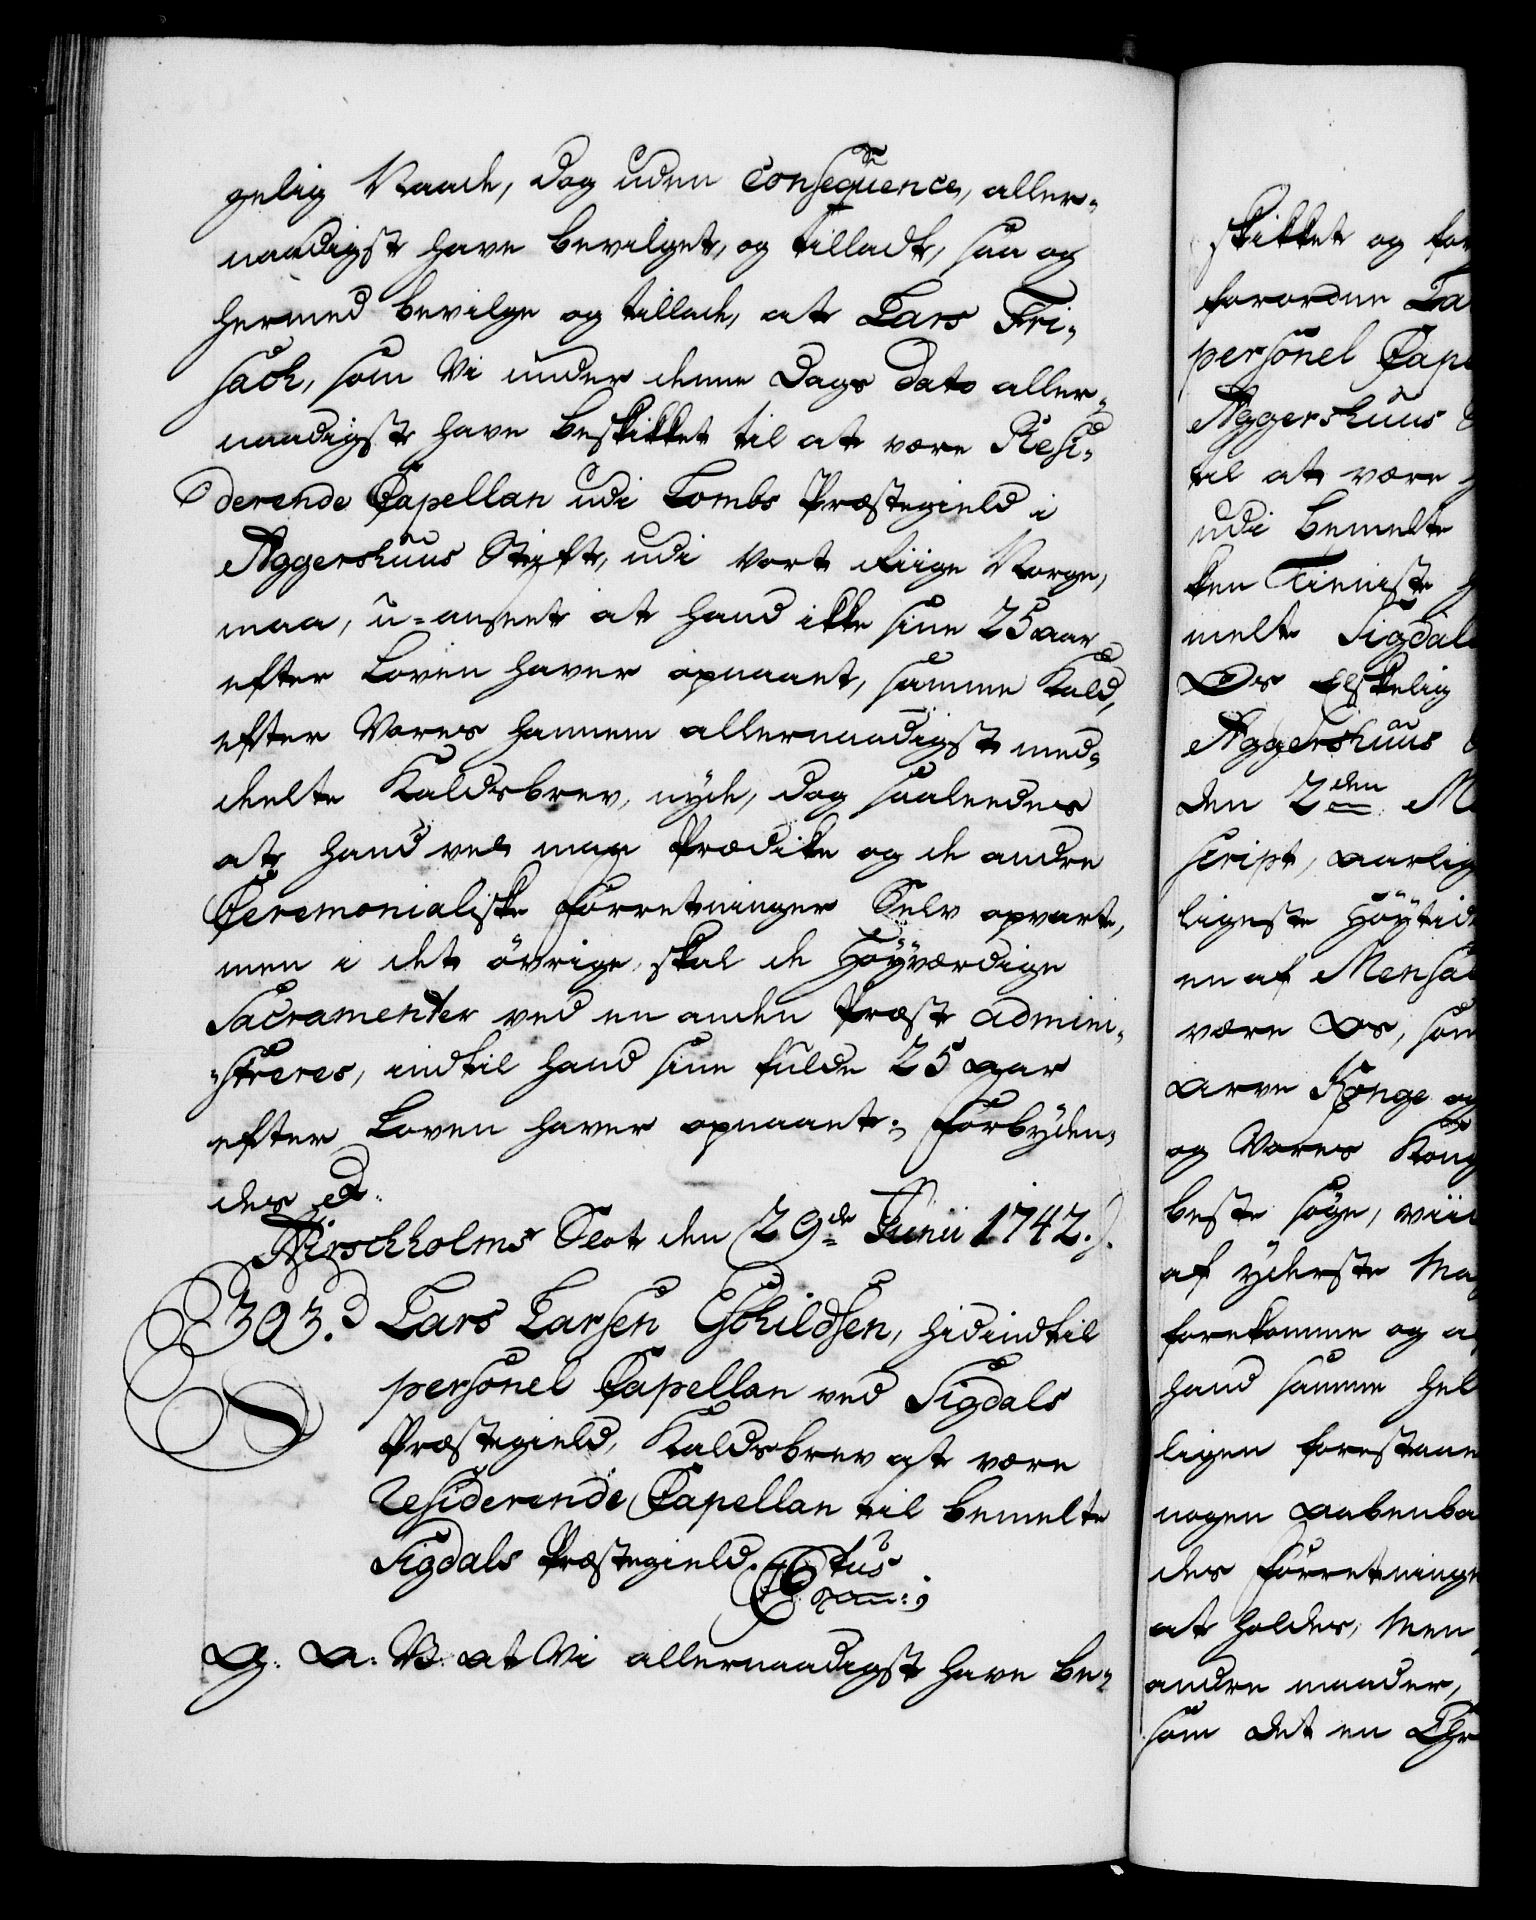 gelig Naade, dog uden Consequence, aller-
naadigst have bevilget, og tilladt, saa og
hermed bevilge og tillade, at Lars Fri-
sach, som Vi under denne Dags Dato aller-
naadigst have beskikket til at være Resi-
derende Capellan udi Lombs Præstegield i
Aggershuus Stift, udi Vort Riige Norge,
maa, u-anseet at hand ikke sine 25 aar
efter Loven haver opnaaet, samme Kald,
efter Vores hannem allernaadigst med-
deelte Kaldsbrev, nyde, dog saaleedes
at hand vel maa Prædike og de andre
Ceremonialiske Forretninger Selv opvarte,
men i det övrige, skal de Höyværdige
Sacramenter ved en anden Præst admini-
-streres, indtil hand sine fulde 25 aar
efter Loven haver opnaaet; Forbyden-
des &.
Hirschholms Slot den 29de Junii 1742.
303. Lars Larsen Eschildsen, hidindtil
personel Capellan ved Sigdals
Præstegield, Kaldsbrev at være
Residerende Capellan til bemelte
Sigdals Præstegield.
G. A. V. at Vi allernaadigst have be-
skikket og for
forordne La
personel Cape
Aggershuus
til at være
udi bemelte
ken Tieniste
melte Sigdal
Os Elskelig
Aggershuus
den 2den M
script, aarlig
ligeste Höytid
en af Mensal
være Os, som
Arve Konge og
og Vores Kong
beste söge, vii
af yderste Ma
forekomme og a
hand samme hel
ligen forestaae
nogen aabenba
des Forretninge
at holdes, Men
andre maader,
som det en Chr